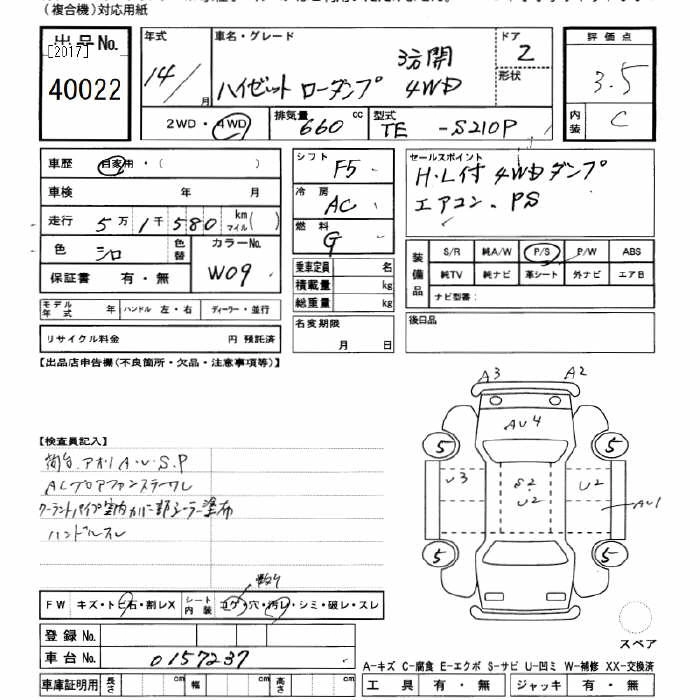 (複合機)対応用紙
出品No.
[2017]
40022
年式
14/
月
車名・グレード
3方開
ハイゼット ローダンプ 4WD
ドア
2
形状
2WD・4WD
排気量
660
cc
型式
TE -S210P
評価点
3.5
内装
C
車歴
自家用・( )
車検
年 月
走行
5万1千580
km
マイル( )
色
シロ
色替
カラーNo.
W09
保証書
有・無
モデル年式
年
ハンドル
左・右
ディーラー・並行
リサイクル料金
円 預託済
シフト
F5
冷房
AC
燃料
G
乗車定員
名
積載量
kg
総重量
kg
名変期限
月 日
セールスポイント
H・L付 4WDダンプ
エアコン・PS
装備品
S/R
純A/W
P/S
P/W
ABS
純TV
純ナビ
革シート
外ナビ
エアB
ナビ型番:
後日品
【出品店申告欄(不良箇所・欠品・注意事項等)】
【検査員記入】
荷台.アオリA・U・S.P
クーラントパイプ室内カバー部シーラー塗布
ハンドルスレ
FW
キズ・トビ石・割レX
シート内装
コゲ・穴・汚レ・シミ・破レ・スレ
登録No.
車台No.
0157237
車庫証明用
長さ
cm
幅
cm
高さ
cm
A3
A2
AU4
5
5
U3
S2
U2
U2
AU1
5
5
スペア
A-キズ C-腐食 E-エクボ S-サビ U-凹ミ W-補修 XX-交換済
工具
有・無
ジャッキ
有・無